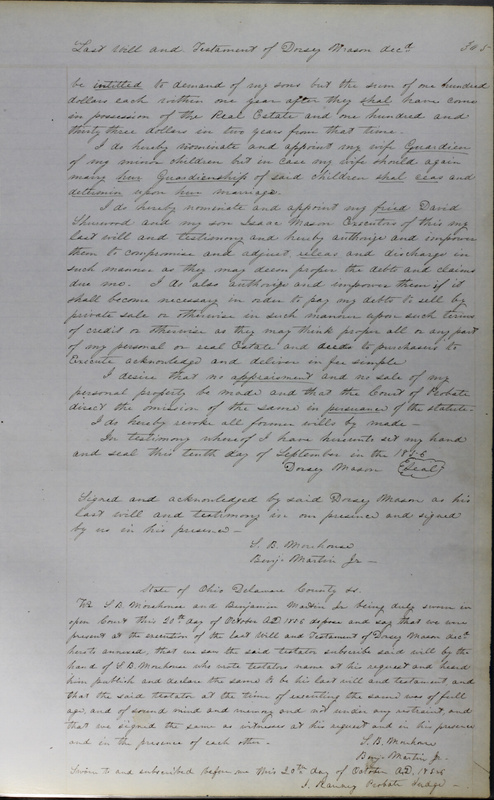 Last Will and Testament of Dorsey Mason decd 345
be intitled to demand of my sons but the sum of one hundred
dollars each within one year after they shal have come
in possession of the Real Estate and one hundred and
thirty three dollars in two years from that time.
I do hereby nominate and appoint my wife Guardien
of my minor children but in case my wife should again
marry hur Guardienship of said children shal ceas and
determin upon hur marriage.
I do hereby nominate and appoint my fried David
Sherwood and my son Isaac Mason Executors of this my
last will and testimony and hereby authorize and impower
them to compromise and adjust, releas and discharge in
such manner as they may deem proper the debts and claims
due me. I do also authorize and impower them if it
shall become necessary in order to pay my debts to sell by
private sale or otherwise in such manner upon such terms
of credit or otherwise as they may think proper all or any part
of my personal or real Estate and deeds to purchasers to
Execute acknowledge and deliver in fee simple
I desire that no appraisment and no sale of my
personal property be made and that the Court of Probate
direct the omission of the same in persuance of the statute.
I do hereby revoke all former wills by made —
In testimony whereof I have hereunto set my hand
and seal this tenth day of September in the 1856
Dorsey Mason (Seal)
Signed and acknowledged by said Dorsey Mason as his
last will and testimony in our presence and signed
by us in his presence —
S. B. Morehouse
Benj. Martin Jr —
State of Ohio Delaware County ss.
We S. B. Morehouse and Benjamin Martin Jr being duly sworn in
open Court this 20th day of October A.D. 1856 depose and say, that we were
present at the execution of the last Will and Testament of Dorsey Mason decd
hereto annexed, that we saw the said testator subscribe said will by the
hand of S. B. Morehouse who wrote testators name at his request and heard
him publish and declare the same to be his last will and testament, and
that the said testator at the time of executing the same was of full
age, and of sound mind and memory and not under any restraint, and
that we signed the same as witnesses at his request and in his presence
and in the presence of each other.
S. B. Morehouse
Benj. Martin Jr.
Sworn to and subscribed before me this 20th day of October A.D. 1856
Probate Judge —